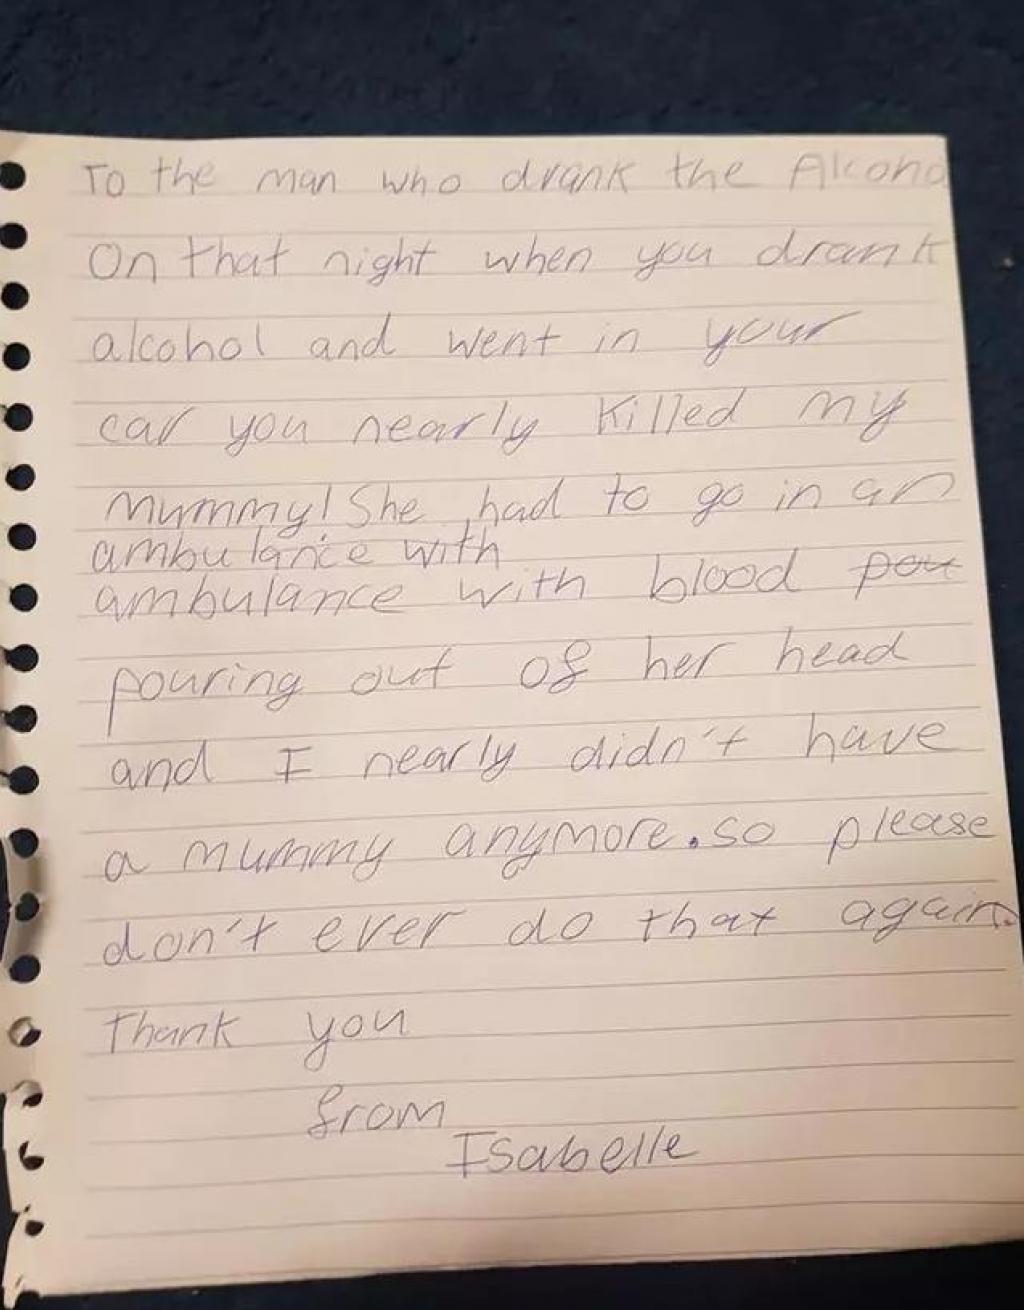 To the man who drank the Alcohol
On that night when you drank
alcohol and went in your
car you nearly killed my
mummy! She had to go in an
ambulance with
ambulance with blood pou
pouring out of her head
and I nearly didn't have
a mummy anymore. so please
don't ever do that again.
Thank you
from
Isabelle